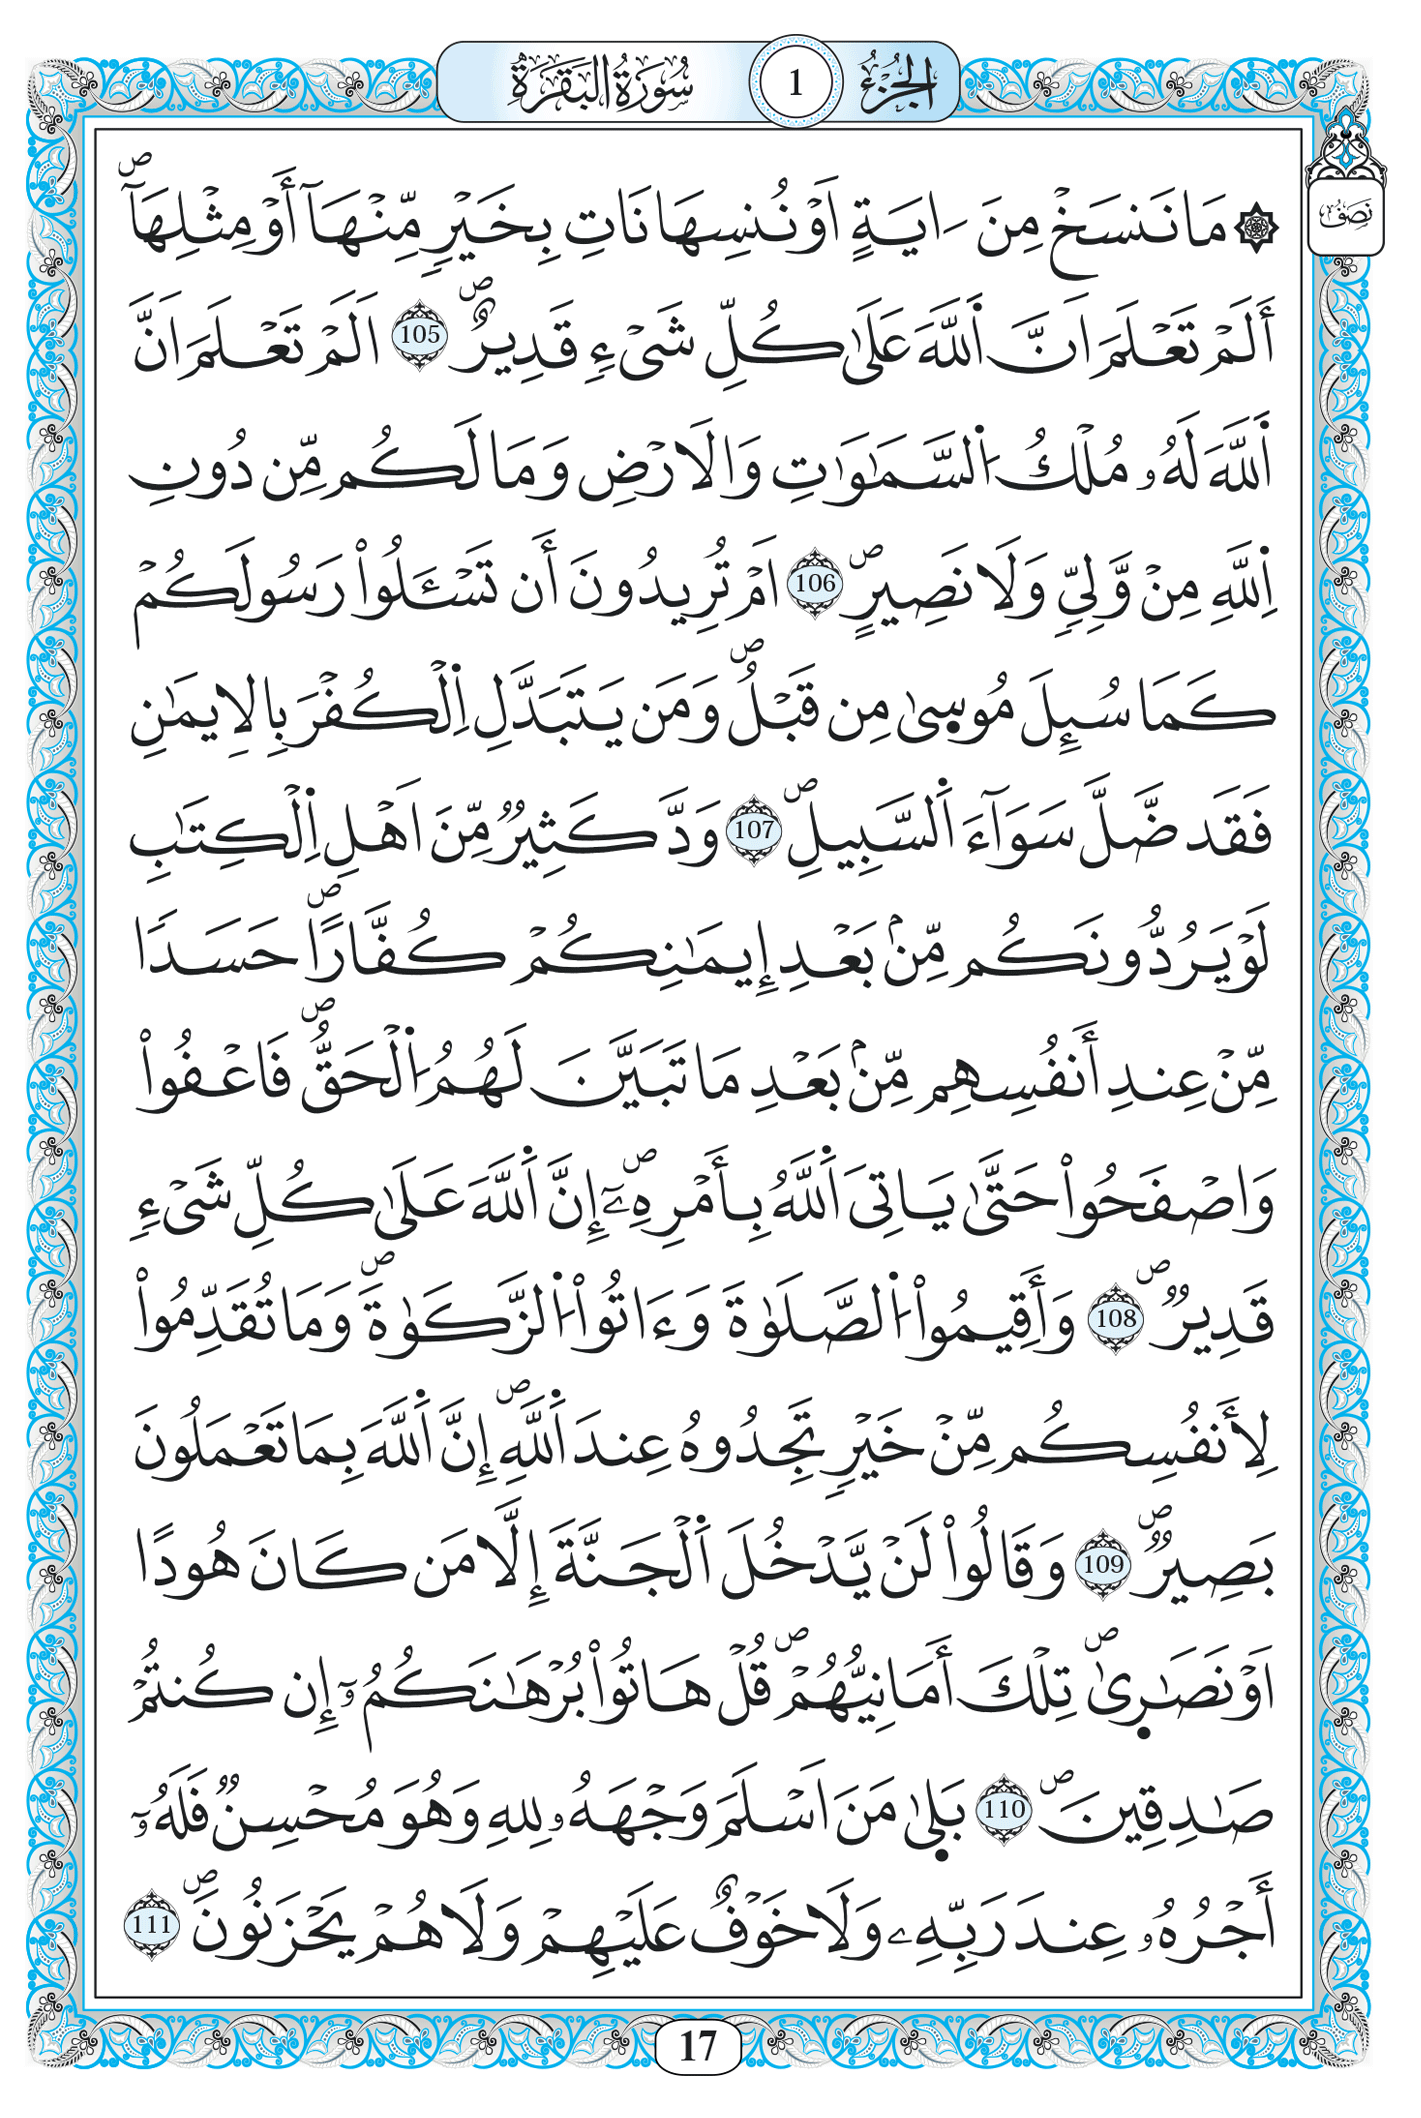 الجُزْءُ 1 سُورَةُ البَقَرَةِ
نِصْفُ
۞ مَا نَنسَخْ مِنَ ـَايَةٍ اَوْ نُنسِهَا نَاتِ بِخَيْرٖ مِّنْهَآ أَوْ مِثْلِهَآۖ
أَلَمْ تَعْلَمَ اَنَّ اَ۬للَّهَ عَلَىٰ كُلِّ شَےْءٖ قَدِيرٌۖ 105 اَلَمْ تَعْلَمَ اَنَّ
اَ۬للَّهَ لَهُۥ مُلْكُ اُ۬لسَّمَٰوَٰتِ وَالَارْضِ وَمَا لَكُم مِّن دُونِ
اِ۬للَّهِ مِنْ وَّلِيّٖ وَلَا نَصِيرٍۖ 106 اَمْ تُرِيدُونَ أَن تَسْـَٔلُواْ رَسُولَكُمْ
كَمَا سُئِلَ مُوس۪ىٰ مِن قَبْلُۖ وَمَن يَتَبَدَّلِ اِ۬لْكُفْرَ بِالِايمَٰنِ
فَقَد ضَّلَّ سَوَآءَ اَ۬لسَّبِيلِۖ 107 وَدَّ كَثِيرٞ مِّنَ اَهْلِ اِ۬لْكِتَٰبِ
لَوْ يَرُدُّونَكُم مِّنۢ بَعْدِ إِيمَٰنِكُمْ كُفَّارًاۖ حَسَدًا
مِّنْ عِندِ أَنفُسِهِم مِّنۢ بَعْدِ مَا تَبَيَّنَ لَهُمُ اُ۬لْحَقُّۖ فَاعْفُواْ
وَاصْفَحُواْ حَتَّىٰ يَاتِيَ اَ۬للَّهُ بِأَمْرِهِۦٓۖ إِنَّ اَ۬للَّهَ عَلَىٰ كُلِّ شَےْءٖ
قَدِيرٞۖ 108 وَأَقِيمُواْ اُ۬لصَّلَوٰةَ وَءَاتُواْ اُ۬لزَّكَوٰةَۖ وَمَا تُقَدِّمُواْ
لِأَنفُسِكُم مِّنْ خَيْرٖ تَجِدُوهُ عِندَ اَ۬للَّهِۖ إِنَّ اَ۬للَّهَ بِمَا تَعْمَلُونَ
بَصِيرٞۖ 109 وَقَالُواْ لَنْ يَّدْخُلَ اَ۬لْجَنَّةَ إِلَّا مَن كَانَ هُودًا
اَوْ نَصَٰر۪ىٰۖ تِلْكَ أَمَانِيُّهُمْۖ قُلْ هَاتُواْ بُرْهَٰنَكُمُۥٓ إِن كُنتُمْ
صَٰدِقِينَۖ 110 بَل۪ىٰ مَنَ اَسْلَمَ وَجْهَهُۥ لِلهِ وَهُوَ مُحْسِنٞ فَلَهُۥٓ
أَجْرُهُۥ عِندَ رَبِّهِۦ وَلَا خَوْفٌ عَلَيْهِمْ وَلَا هُمْ يَحْزَنُونَۖ 111
17